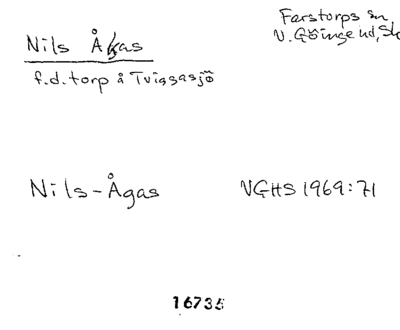 Nils Ågas
Farstorps sn
V. Göinge hd, Sk
f.d. torp å Tviggasjö
Nils-Ågas
VGHS 1969:71
16735